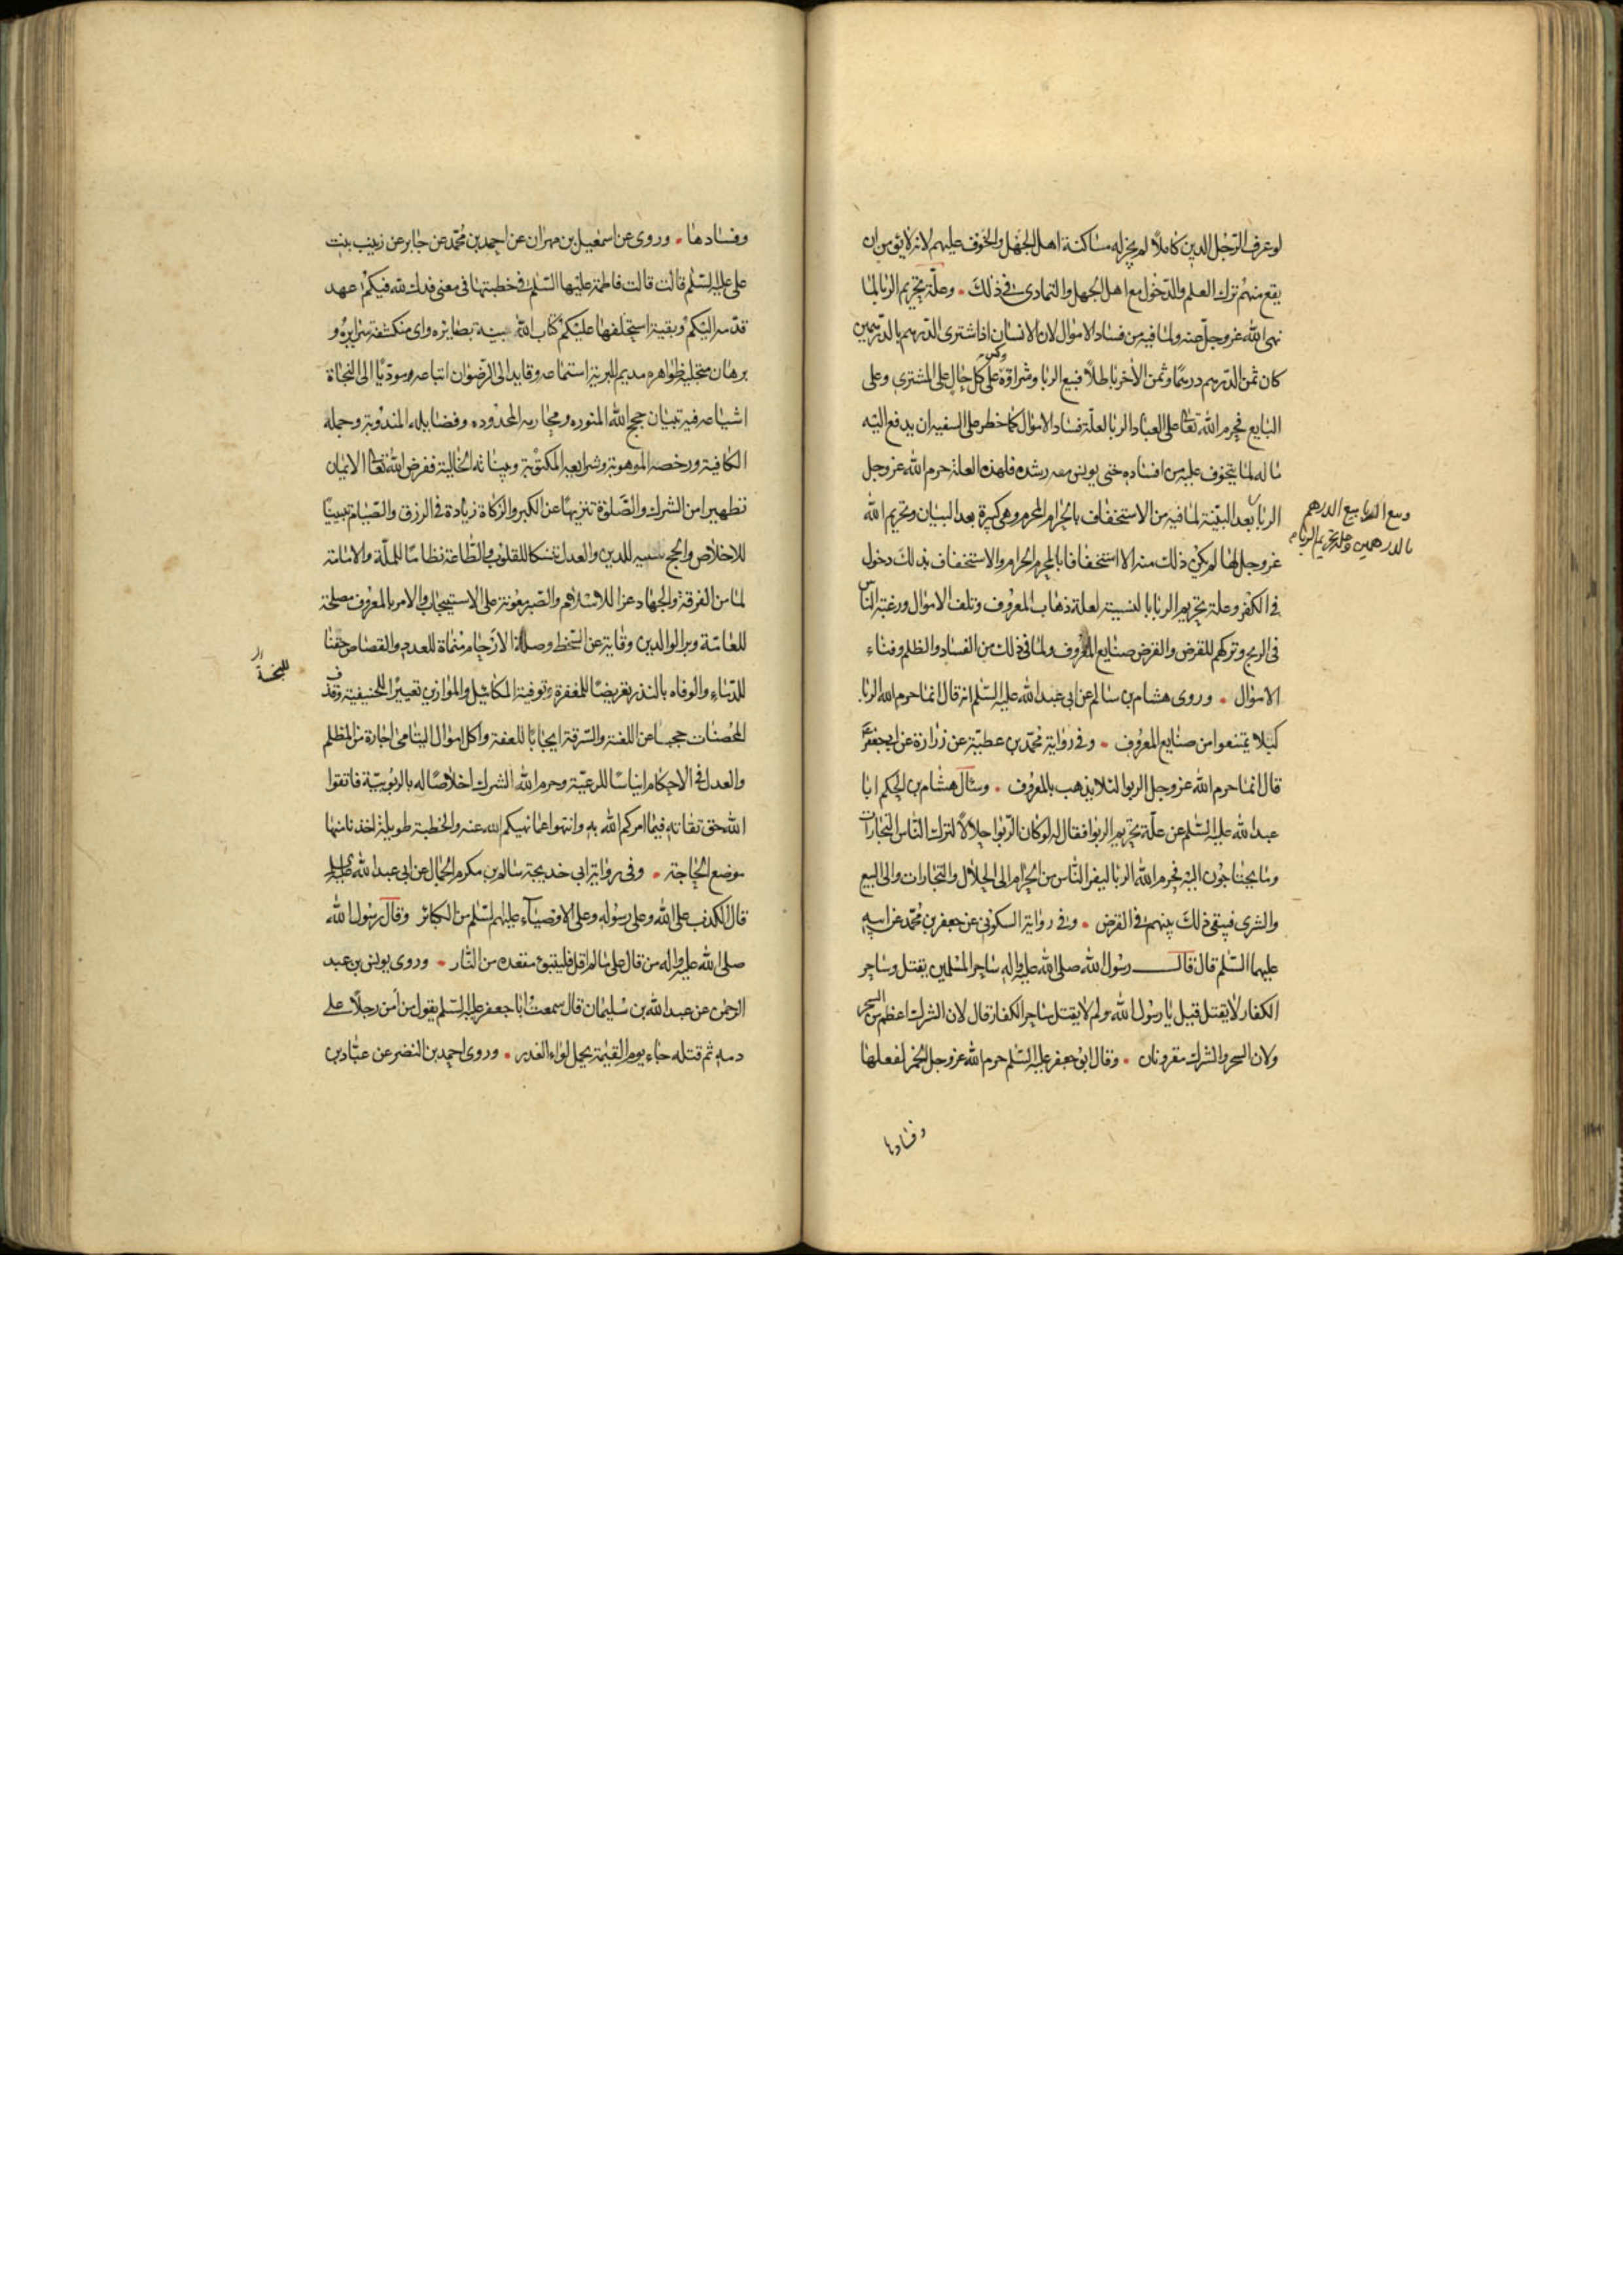 لو عرف الرّجل الدين كاملاً لم يجز له مساكنة اهل الجهل والخوف عليهم لانه لا يؤمن ان
يقع منهم ترك العلم والدّخول مع اهل الجهل والتمادى فى ذلك ٠ وعلّة تحريم الربا لما
نهى الله عز وجلّ عنه ولما فيه من فساد الاموال لان الانسان اذا اشترى الدّرهم بالدّرهمين
كان ثمن الدّرهم درهمًا وثمن الآخر باطلاً فبيع الربا وشراؤه وكس على كل حال على المشترى وعلى
البايع فحرم الله تعالى على العباد الربا لعلّة فساد الاموال كما خطر على السفيه ان يدفع اليه
ماله لما يتخوف عليه من افساده حتى يونس منه رشده فلهذه العلة حرم الله عز وجل
الربا بعد البيّنة لما فيه من الاستخفاف بالحرام المحرم وهى كبيرة بعد البيان وتحريم الله
عز وجل لها لم يكن ذلك منه الا استخفافا بالمحرم الحرام والاستخفاف بذلك دخول
فى الكفر وعلة تحريم الربا بالنسيئة لعلة ذهاب المعروف وتلف الاموال ورغبة الناس
فى الربح وتركهم للقرض والقرض صنايع المعروف ولما فى ذلك من الفساد والظلم وفناء
الاموال ٠ وروى هشام بن سالم عن ابى عبد الله عليه السّلم انه قال انما حرم الله الربا
كيلا يمتنعوا من صنايع المعروف ٠ وفى رواية محمّد بن عطيّة عن زرارة عن ابى جعفر
قال انما حرم الله عز وجل الربوا لئلا يذهب بالمعروف ٠ وسئال هشام بن الحكم ابا
عبد الله عليه السّلم عن علّة تحريم الربوا فقال له لو كان الرّبوا حلالاً لترك الناس التجارات
وما يحتاجون اليه فحرم الله الربا ليفر النّاس من الحرام الى الحلال والتجارات والى البيع
والشرى فيبقى ذلك بينهم فى القرض ٠ وفى رواية السكونى عن جعفر بن محمّد عن ابيه
عليهما السّلم قال قال رسول الله صلى الله عليه واله ساحر المسلمين يقتل وساحر
الكفار لا يقتل قيل يا رسول الله ولم لا يقتل ساحر الكفار قال لان الشرك اعظم من السحر
ولان السحر والشرك مقرونان ٠ وقال ابو جعفر عليه السّلم حرم الله عز وجل الخمر لفعلها
وفسادها
وبيع الربا بيع الدرهم
بالدرهمين وعلة تحريم الربا
وفسادها ٠ وروى عن اسمعيل بن مهران عن احمد بن محمّد عن جابر عن زينب بنت
على عليه السّلم قالت قالت فاطمة عليها السّلم فى خطبتها فى معنى فدك لله فيكم عهد
قدّمه اليكم وبقية استخلفها عليكم كتاب الله بينة بصائره واى منكشفة سرايره و
برهان متجلية ظواهره مديم للبرية استماعه وقايد الى الرّضوان اتباعه ومودّيًا الى النجاة
اشياعه فيه تبيان حجج الله المنوره ومحارمه المحدوده وفضايله المندوبة وجمله
الكافية ورخصه الموهوبة وشرايعه المكتوبة وبيناته الخالية ففرض الله تعالى الايمان
تطهيرا من الشرك والصّلوة تنزيهًا عن الكبر والزكاة زيادة فى الرزق والصّيام تبيينًا
للاخلاص والحج تسنيه للدين والعدل تمسكا للقلوب والطّاعة نظامًا للملّة والامامة
لما من الفرقة والجهاد عزا للاسلام والصّبر معونة على الاستيجاب والامر بالمعروف مصلحة
للعامّة وبر الوالدين وقاية عن السّخط وصلة الارحام منماة للعدد والقصاص حقنا
للدّماء والوفاء بالنذر تعريضًا للمغفرة وتوفية المكائيل والموازين تعييرًا للحنيفية وقذف
للبخسة
المحصنات حجبًا عن اللعنة والسّرقة ايجابًا للعفة واكل اموال اليتامى اجارة من الظلم
والعدل فى الاحكام ايناسًا للرعيّة وحرم الله الشرك اخلاصًا له بالربوبيّة فاتقوا
الله حق تقاته فيما امركم الله به وانتهوا عما نهيكم الله عنه والخطبة طويلة اخذنا منها
موضع الحاجة ٠ وفى رواية ابى خديجة سالم بن مكرم الجمال عن ابى عبد الله عليه السلم
قال الكذب على الله وعلى رسوله وعلى الاوصياء عليهم السّلم من الكبائر وقال رسول الله
صلى الله عليه واله من قال على ما لم اقل فليتبوء مقعده من النّار ٠ وروى يونس بن عبد
الرحمن عن عبد الله بن سليمان قال سمعت ابا جعفر عليه السّلم يقول من آمن رجلاً على
دمه ثم قتله جاء يوم القيمة يحمل لواء الغدر ٠ وروى احمد بن النضر عن عبّاد بن